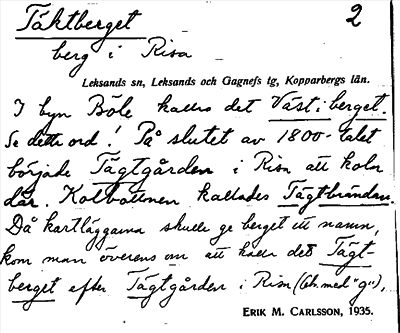 Täktberget 2
berg i Risa
Leksands sn, Leksands och Gagnefs tg, Kopparbergs län.
I byn Böle kallas det Väst i berget.
Se detta ord! På slutet av 1800-talet
började Tägtgården i Risa att kola
där. Kolbottnen kallades Tägtbrändan.
Då kartläggarna skulle ge berget ett namn,
kom man överens om att kalla det Tägt-
berget efter Tägtgården i Risa (Obs. med "g"),
ERIK M. CARLSSON, 1935.